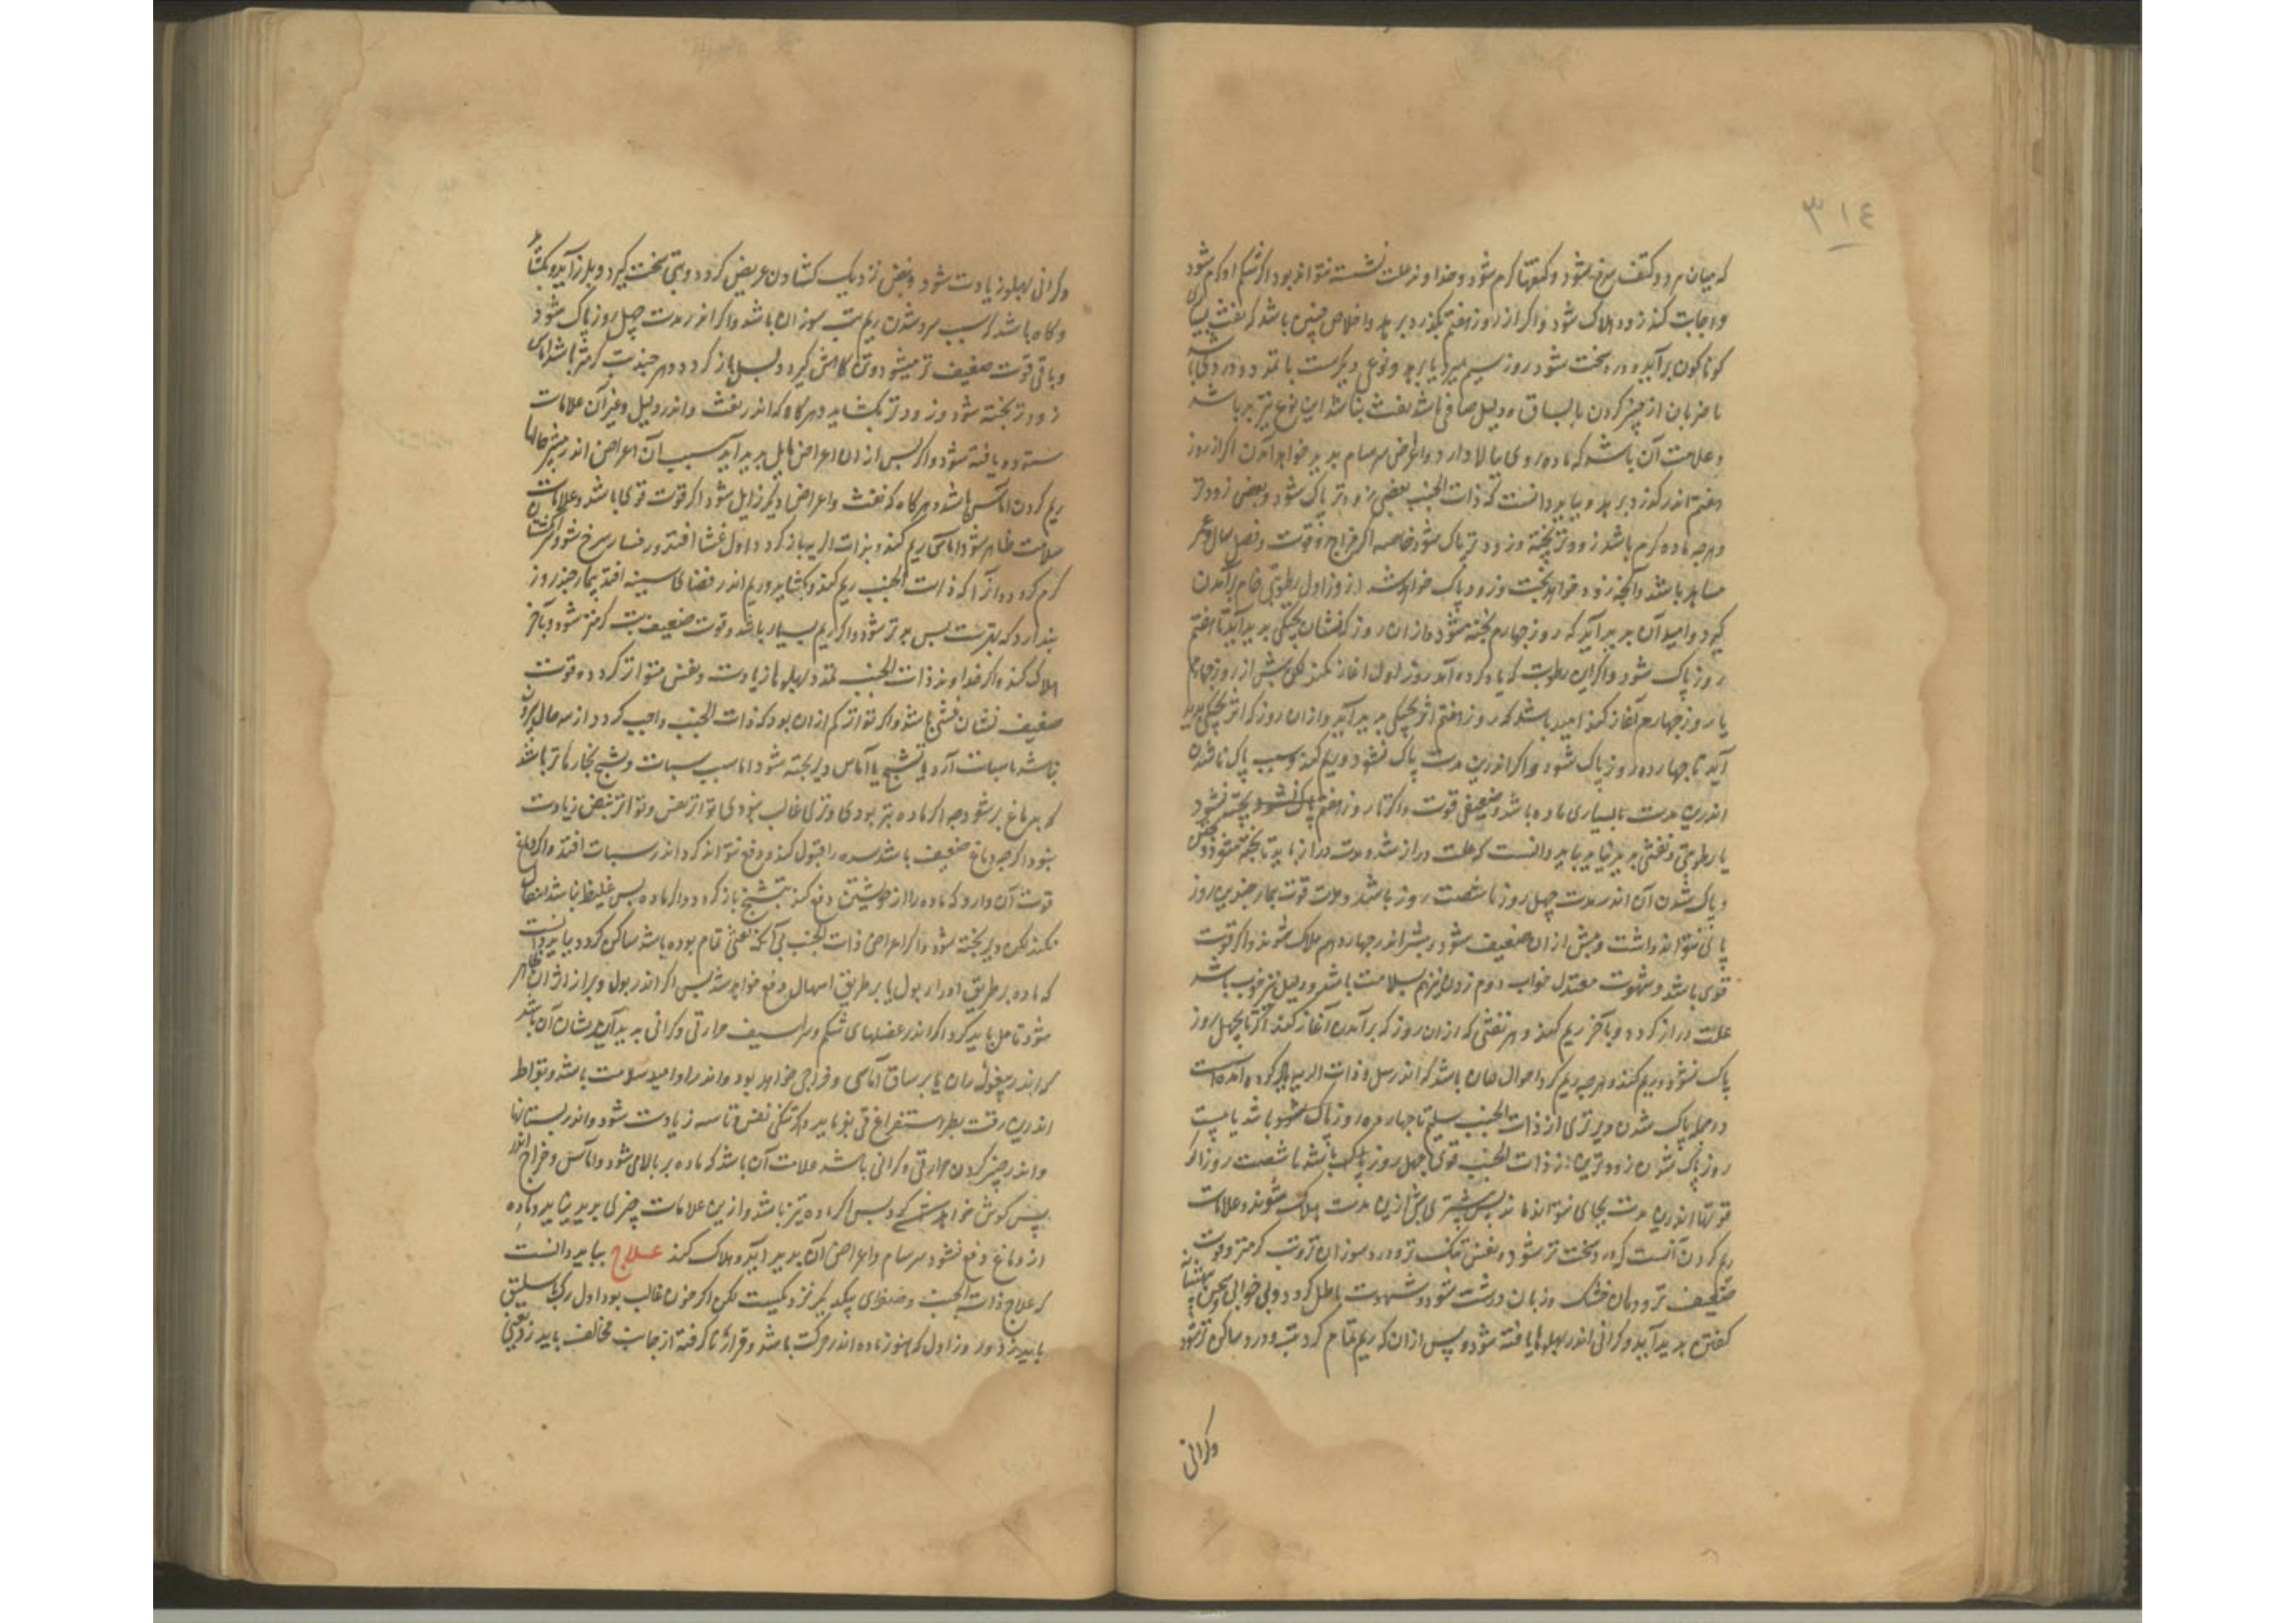 ٣١٤
که میان هر دو کتف سرخ شود و کتفها گرم شود و خداوند علت نشسته نتواند بود اگر شکم او گرم شود
و اجابت کند زود هلاک شود و اگر از روز هفتم بگذرد برهد و خلاص چنین باشد که نفث بسیار
کوناکون برآید و درد سخت شود روز سیم بمیرد یا برهد و نوعی دیکرست با تمدد و درد
با ضربان از چنبر کردن با ساق و دلیل صافی باشد نفث نباشد این نوع نیز بد باشد
و علامت آن باشد که ماده روی ببالا دارد و اعراض سرسام پدید خواهد آمدن اکر از روز
هفتم اندر کذرد برهد و بباید دانست که ذات الجنب بعضی زودتر پاک شود و بعضی زودتر
و هرچه ماده کرم باشد زودتر پخته و زودتر پاک شود خاصه اکر مزاج و قوت و فصل سال و عمر
مساعد باشد و آنچه زود خواهد پخت و زود پاک خواهد شد از روز اول رطوبتی خام برآمدن
کیرد و امید آن پدید آید که روز چهارم پخته شود و از آن روز که نشان پختکی پدید آید تا هفتم
روز پاک شود و اکر این رطوبت که یاد کرده آمد روز اول اغاز نکند لکن پیش از روز چهارم
یا روز چهارم آغاز کند امید باشد که روز هفتم اثر پختکی پدید آید و از آن روز که اثر پختکی پدید
آید تا چهارده روز پاک شود و اکر اندرین مدت پاک نشود و ریم کند و سبب پاک ناشدن
اندرین مدت یا بسیاری ماده باشد و ضعیفی قوت و اکر تا روز هفتم پاک نشود پخته نشود
یا رطوبتی و نفثی پدید نیاید بباید دانست که علت دراز شد و مدت دراز باید تا پخته شود و
و پاک شدن آن اندر مدت چهل روز تا شصت روز باشد و مدت قوت بیمار چندین روز
پای نتواند داشت و پیش از آن ضعیف شود و بیشتر اندر چهاردهم هلاک شوند و اکر قوت
قوی باشد و شهوت معتدل خواب و دم زدن نیز هم بسلامت باشد و دلیل نیز خوب باشد
علت دراز کردد و بآخر ریم کند و هر نفثی که از آن روز که برآمدن آغاز کند اکر تا چهل روز
پاک نشود و ریم کند و هرچه ریم کرد احوال همان باشد که اندر سل و ذات الریه یاد کرده آمده است
و در جمله پاک شدن دیرتری از ذات الجنب سلیم تا چهارده روز پاک شود باشد یا بیست
روز پاک شدن زودترین از ذات الجنب قوی چهل روز پاک باشد تا شصت روز اکر
قوتها اندرین مدت بجای نتواند ماند پس بیشتری پیش ازین مدت هلاک شوند و علامات
ریم کردن آنست که درد سخت تر شود و نفس تنک تر و درد سوزان تر و تب کرمتر و قوت
ضعیف تر و دهان خشک و زبان درشت شود و شهوت باطل کردد و بی خوابی و
کفتن پدید آید و کرانی اندر پهلوها یافته شود و پس از آن که ریم تمام کرد تب و درد ساکن تر شود
وکرانی
وکرانی پهلو زیادت شود و نبض نزدیک کشادن عریض کردد و تبی سخت کیرد و بلرز آید و بکشاید
و کاه باشد که سبب سر شدن ریم تب سوزان باشد و اکر اندر مدت چهل روز پاک شود
و باقی قوت ضعیف تر میشود و تن کاهش کیرد و بسل باز کردد و هر چند تب کرمتر باشد آماس
زودتر پخته شود و زودتر بکشاید و هر کاه که اندر نفث و اندر دلیل و غیر آن علامات
ستوده یافته شود و اکر پس از آن اعراض هایل پدید آید سبب آن اعراض اندر بیشتر حالها
ریم کردن آماس باشد و هر کاه که نفث و اعراض دیکر زایل شود اکر قوت قوی باشد و علامات
سلامت ظاهر شود آماس ریم کند و بذات الریه باز کردد و اول غشا افتد و رخسار سرخ شود و سر انکشتان
کرم کردد و از آنکه ذات الجنب ریم کند و بکشاید و ریم اندر فضای سینه افتد بیمار چند روز
پندارد که بهترست پس بدتر شود و اکر ریم بسیار باشد و قوت ضعیف تب کرمتر شود و بآخر
هلاک کند و اکر خداوند ذات الجنب تمدد پهلوها زیادت و نفس متواتر کردد و قوت
ضعیف نشان غشی باشد و اکر تواتر کم از آن بود که ذات الجنب واجب کردد از سه حال بیرون
نباشد یا سبات آرد یا تشنج یا آماس دیر پخته شود اما سبب سبات و تشنج بخارها تر باشد
که بدماغ برشود چه اکر ماده تیز بودی و تری غالب نبودی تواتر نفس و تواتر نبض زیادت
بود و اکر چه دماغ ضعیف باشد سده را قبول کند و دفع نتواند کرد اندر سبات افتد و اکر دماغ
قوت آن دارد که ماده را از خویشتن دفع کند بتشنج باز کردد و اکر ماده بس غلیظ نباشد انتقال
نکند لکن دیر پخته شود و اکر اعراض ذات الجنب بی آنکه نفثی تمام بوده باشد ساکن کردد بباید دانست
که ماده بر طریق ادرار بول یا بر طریق اسهال دفع خواهد شد پس اکر اندر بول و براز اثر آن ظاهر
شود تامل باید کرد اکر اندر عضلهای شکم و شراسیف حرارتی و کرانی پدید آید نشان آن باشد
که اندر پیغوله ران یا بر ساق آماسی و خراجی خواهد بود و اندر او امید سلامت باشد و بقراط
اندرین وقت بطلب استفراغ قی فرماید و اکر تنکی نفس و تاسه زیادت شود و اندر پستانها
و اندر چنبر کردن حرارتی و کرانی باشد علامت آن باشد که ماده بر بالا می شود و آماس و خراج اندر
پس کوش خواهد کرد پس اکر ماده تیز باشد و ازین علامات چیزی پدید نیاید و ماده
از دماغ دفع نشود سرسام و اعراض آن پدید آید و هلاک کند علاج بباید دانست
که علاج ذات الجنب و ضیوای بیکدیکر نزدیکست لکن اکر خون غالب بود اول رک باسلیق
باید زد و در روز اول که هنوز ماده اندر حرکت باشد و قرار نا کرفته از جانب مخالف باید زد یعنی